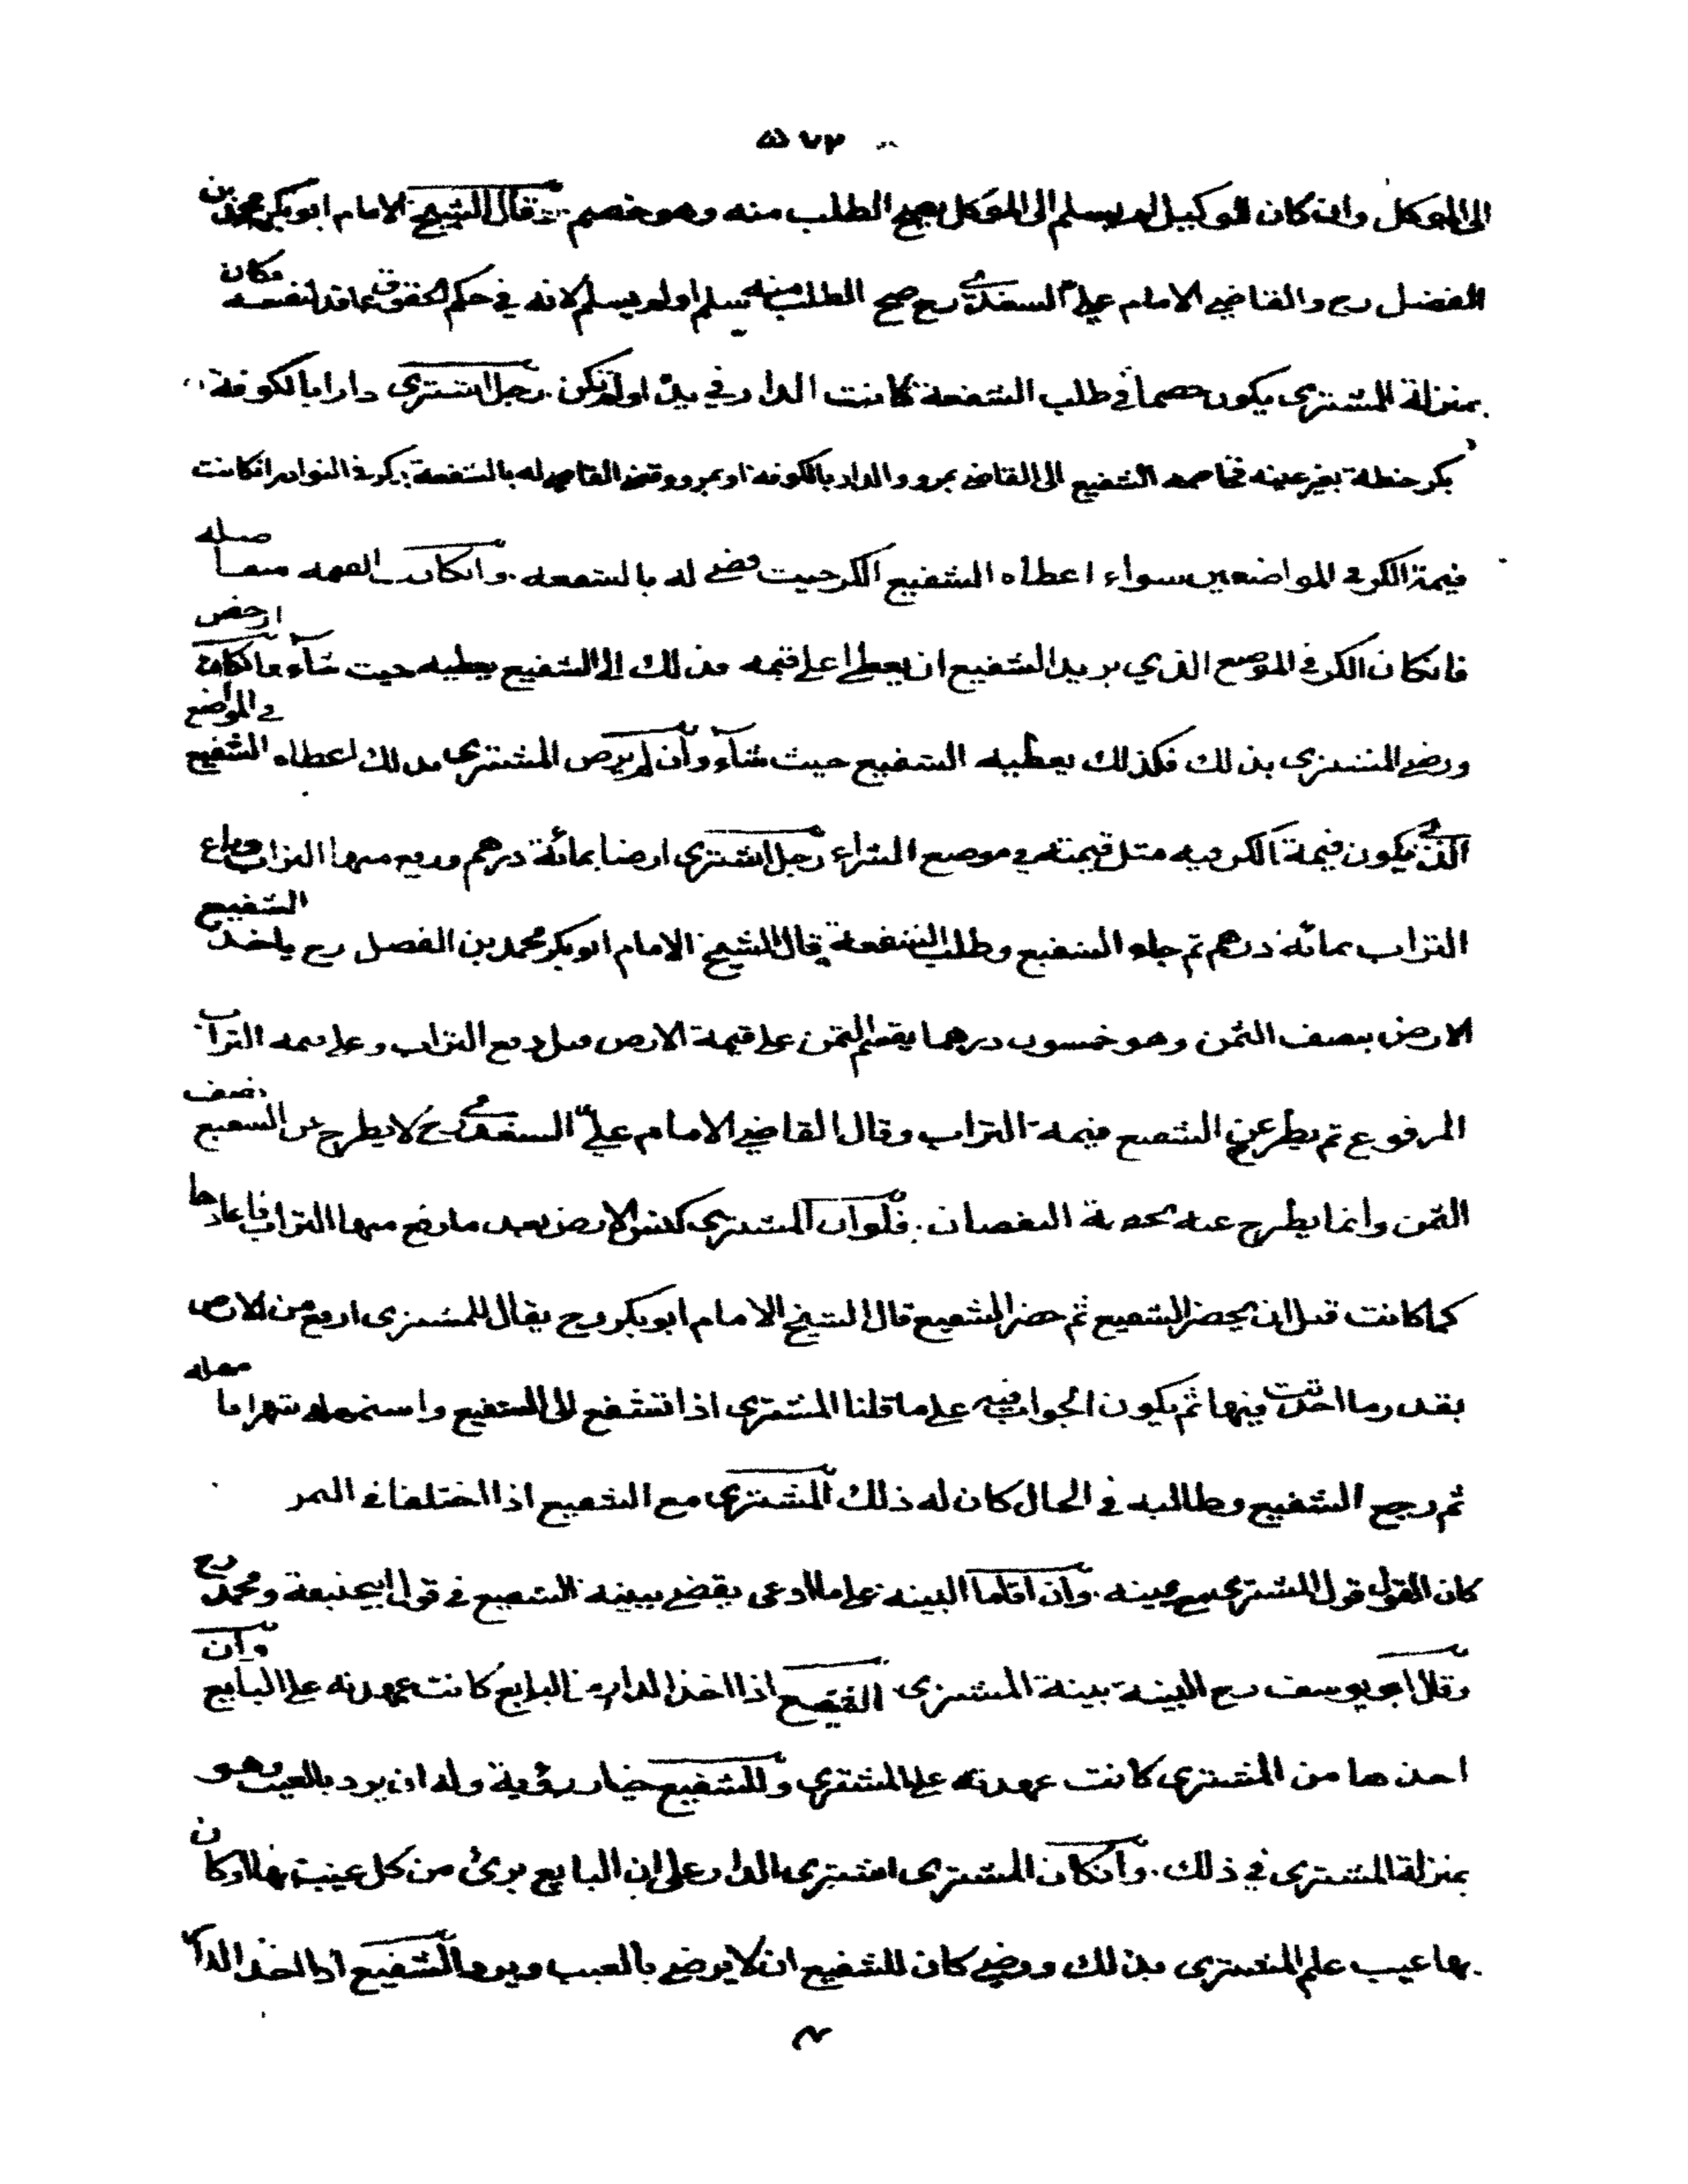 ٥٧٢
الى الموكل وان كان الوكيل لم يسلم الى الموكل يصح الطلب منه وهو خصم قال الشيخ الامام ابوبكر محمد بن
الفضل رح والقاضي الامام علي السغدي رح صح الطلب منه سلم اولم يسلم لانه في حكم الحقوق عاقد لنفسه فكان
بمنزلة المشتري يكون خصما في طلب الشفعة كانت الدار في يده اولم تكن رجل اشترى دارا بالكوفة
بكر حنطة بغير عينه فخاصمه الشفيع الى القاضي بمرو والدار بالكوفة او بمرو وقضى القاضي له بالشفعة ذكر في النوادر ان كانت
قيمة الكر في الموضعين سواء اعطاه الشفيع الكر حيث قضى له بالشفعه وان كانت القيمه متفاضله
فان كان الكر في الموضع الذي يريد الشفيع ان يعطي اعلى قيمه فذلك الى الشفيع يعطيه حيث شاء وان كان ارخص
ورضي المشترى بذلك فكذلك يعطيه الشفيع حيث شاء وان لم يرض المشترى بذلك اعطاه الشفيع في الموضع
الذي يكون قيمة الكر فيه مثل قيمته في موضع الشراء رجل اشترى ارضا بمائة درهم ورفع منها التراب وباع
التراب بمائة درهم ثم جاء الشفيع وطلب الشفعة قال الشيخ الامام ابوبكر محمد بن الفضل رح ياخذ الشفيع
الارض بنصف الثمن وهو خمسون درهما يقسم الثمن على قيمة الارض قبل رفع التراب وعلى قيمه التراب
المرفوع ثم يطرح عن الشفيع قيمه التراب وقال القاضي الامام علي السغدي رح لا يطرح عن الشفيع نصف
الثمن وانما يطرح عنه بحصة النقصان فلو ان المشترى كبس الارض بعد ما رفع منها التراب فاعادها
كما كانت قبل ان يحضر الشفيع ثم حضر الشفيع قال الشيخ الامام ابوبكر رح يقال للمشترى ارفع من الارض
بقدر ما احدثت فيها ثم يكون الجواب فيه على ما قلنا المشترى اذا تشفع الى الشفيع واستمهله شهرا فامهله
ثم رجع الشفيع وطالبه في الحال كان له ذلك المشترى مع الشفيع اذا اختلفا في الثمن
كان القول قول المشترى مع يمينه وان اقاما البينه على ما ادعى يقضى ببينه الشفيع في قول ابيحنيفة ومحمد رح
وقال ابو يوسف رح البينة بينة المشترى الشفيع اذا اخذ الدار من البايع كانت عهدته على البايع وان
اخذها من المشترى كانت عهدته على المشترى وللشفيع خيار رؤية وله ان يرد بالعيب وهو
بمنزلة المشترى في ذلك وان كان المشترى اشترى الدار على ان البايع برئ من كل عيب بها او كان
بها عيب علم المشترى بذلك ورضي كان للشفيع ان لا يرضى بالعيب ويردها الشفيع اذا اخذ الدار